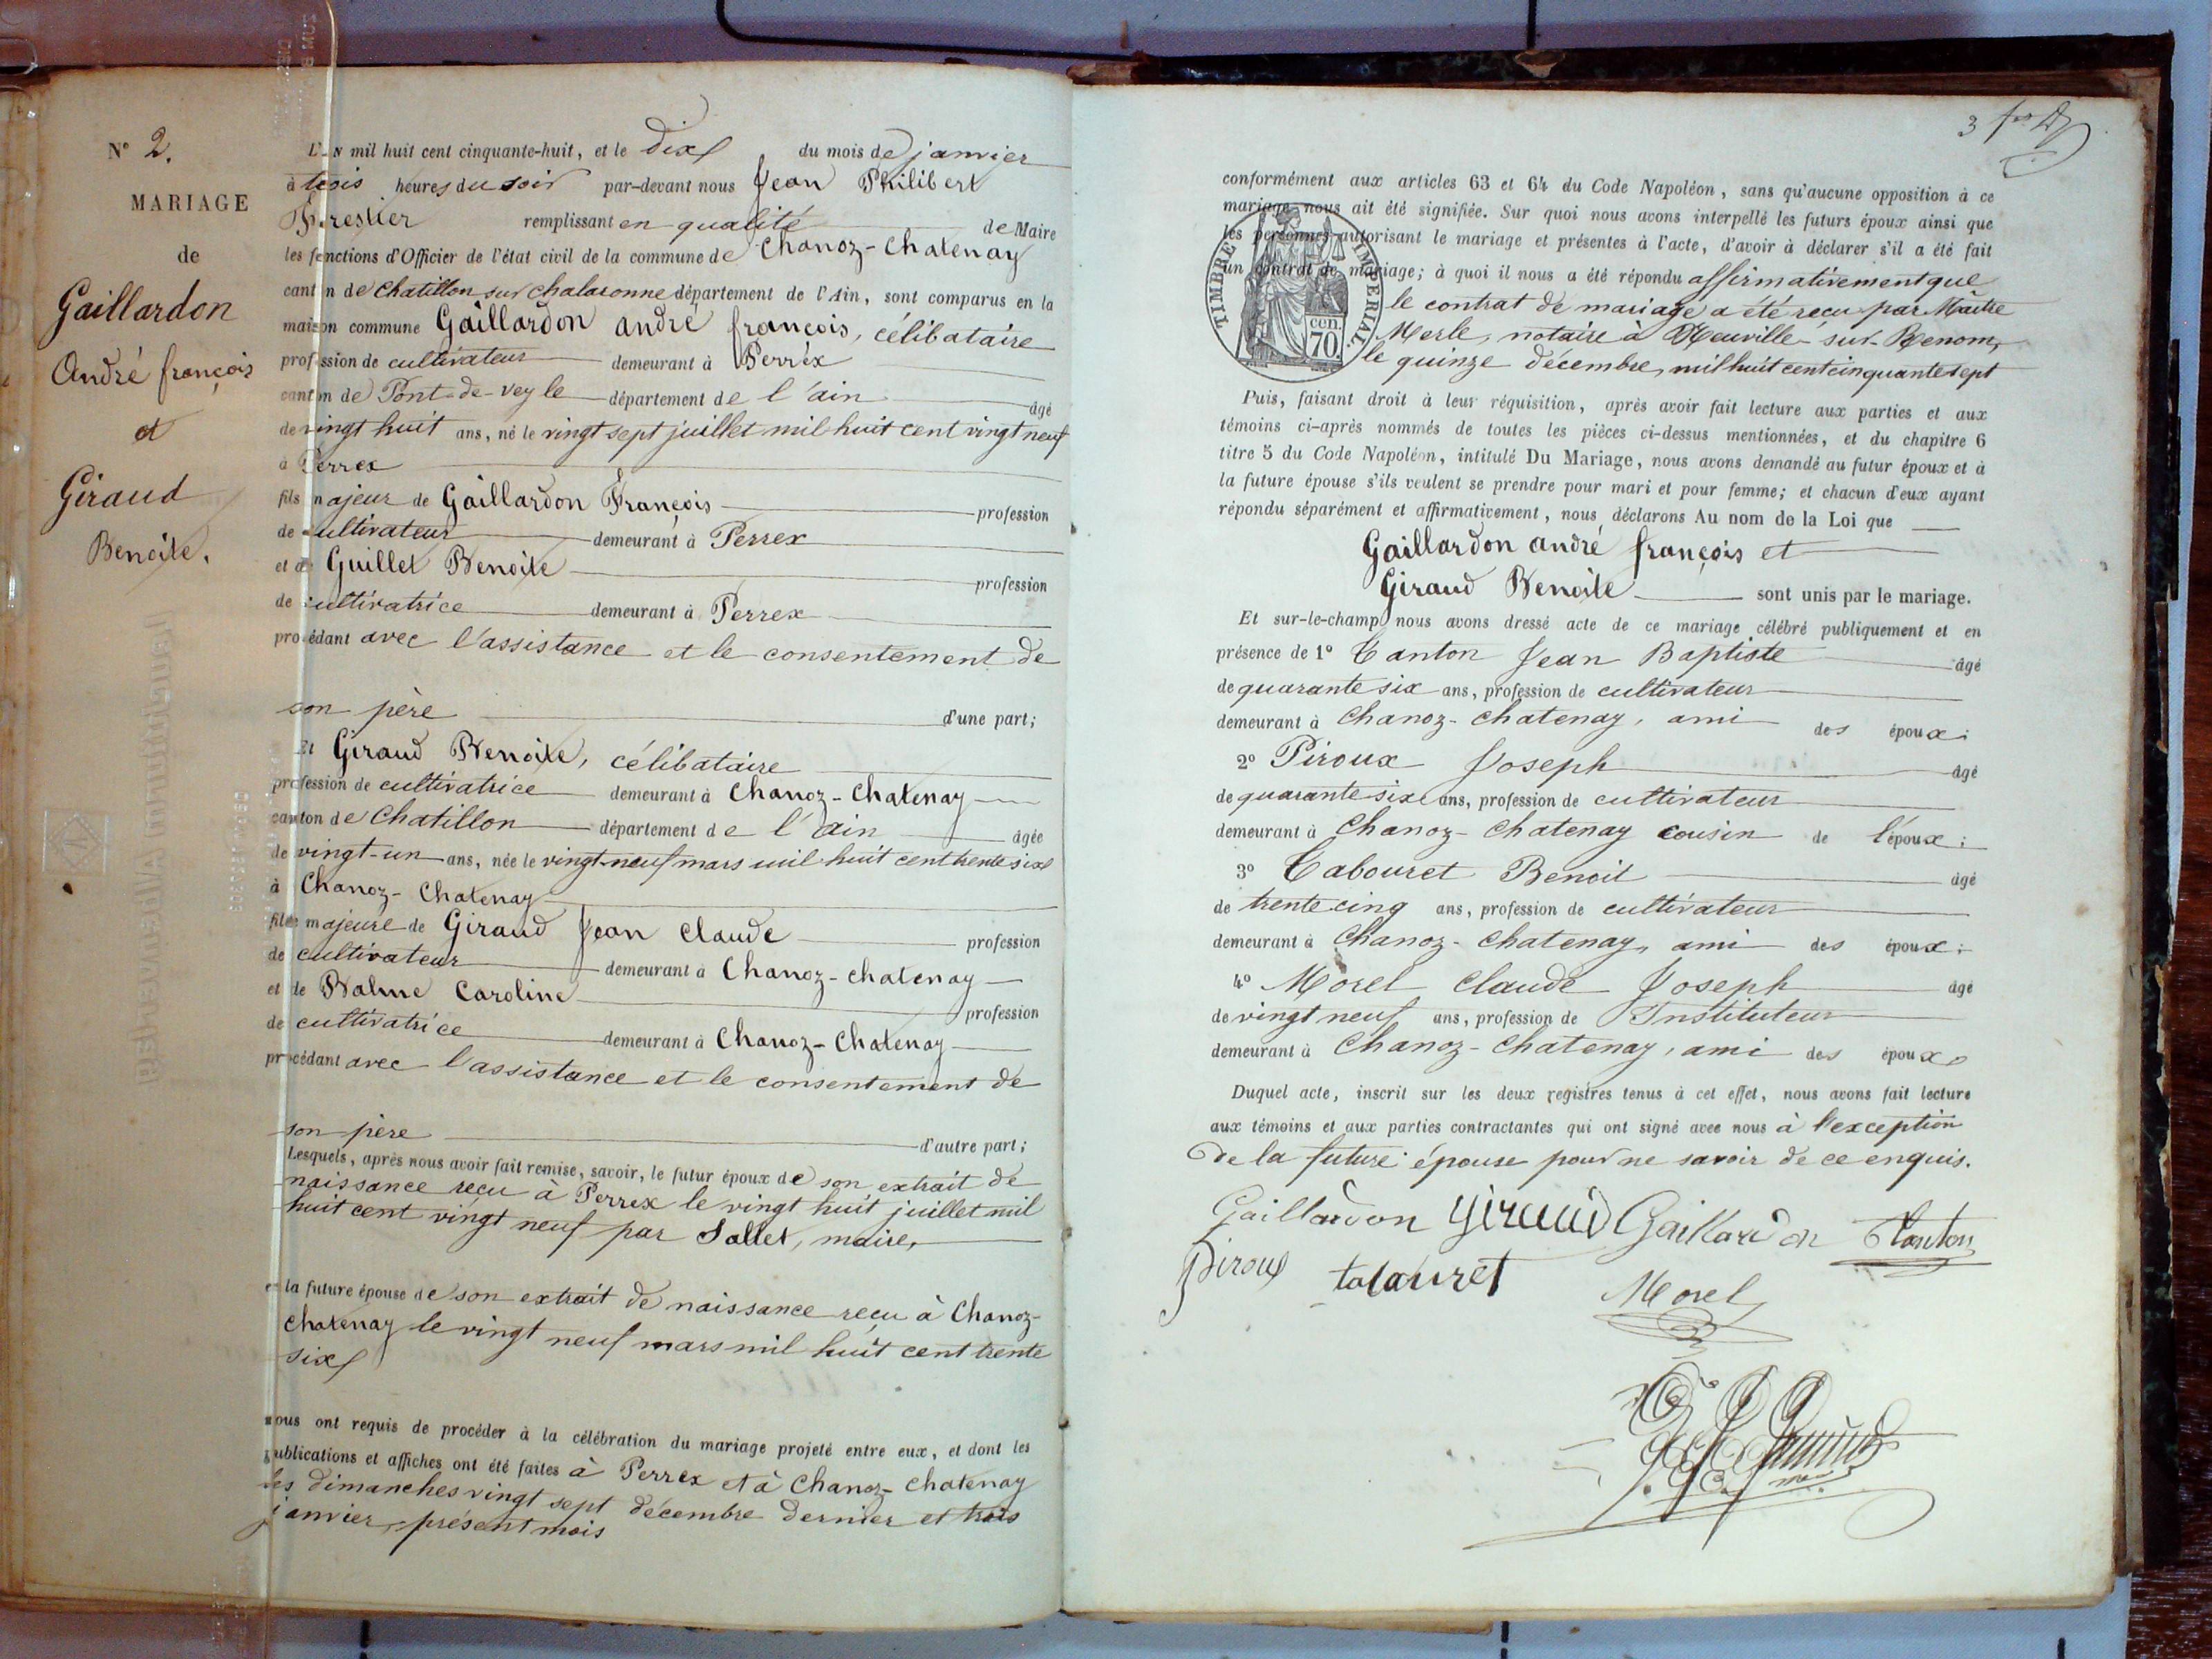 N° 2.
MARIAGE
de
Gaillardon
André françois
et
Giraud
Benoîte.
L'AN mil huit cent cinquante-huit, et le dix du mois de janvier
à trois heures du soir par-devant nous Jean Philibert
Forestier remplissant en qualité de Maire
les fonctions d'Officier de l'état civil de la commune de Chanoz-Chatenay
canton de Chatillon sur Chalaronne département de l'Ain, sont comparus en la
maison commune Gaillardon andré françois, célibataire
profession de cultivateur demeurant à Perrex
canton de Pont-de-veyle département de l'ain âgé
de vingt huit ans, né le vingt sept juillet mil huit cent vingt neuf
à Perrex
fils majeur de Gaillardon François profession
de cultivateur demeurant à Perrex
et de Guillet Benoîte profession
de cultivatrice demeurant à Perrex
procédant avec l'assistance et le consentement de
son père d'une part;
Et Giraud Benoîte, célibataire
profession de cultivatrice demeurant à Chanoz-Chatenay
canton de Chatillon département de l'ain âgée
de vingt-un ans, née le vingt-neuf mars mil huit cent trente six
à Chanoz-Chatenay
fille majeure de Giraud Jean Claude profession
de cultivateur demeurant à Chanoz-chatenay
et de Balme Caroline profession
de cultivatrice demeurant à Chanoz-Chatenay
procédant avec l'assistance et le consentement de
son père d'autre part;
Lesquels, après nous avoir fait remise, savoir, le futur époux de son extrait de
naissance reçu à Perrex le vingt huit juillet mil
huit cent vingt neuf par Sallet, maire,
et la future épouse de son extrait de naissance reçu à Chanoz-
Chatenay le vingt neuf mars mil huit cent trente
six
nous ont requis de procéder à la célébration du mariage projeté entre eux, et dont les
publications et affiches ont été faites à Perrex et à Chanoz-Chatenay
les dimanches vingt sept décembre dernier et trois
janvier, présent mois
3
conformément aux articles 63 et 64 du Code Napoléon, sans qu'aucune opposition à ce
mariage nous ait été signifiée. Sur quoi nous avons interpellé les futurs époux ainsi que
les personnes autorisant le mariage et présentes à l'acte, d'avoir à déclarer s'il a été fait
un contrat de mariage; à quoi il nous a été répondu affirmativement que
le contrat de mariage a été reçu par Maître
Merle, notaire à Neuville-sur-Renom,
le quinze décembre, mil huit cent cinquante sept
TIMBRE IMPERIAL.
cen.
70.
Puis, faisant droit à leur réquisition, après avoir fait lecture aux parties et aux
témoins ci-après nommés de toutes les pièces ci-dessus mentionnées, et du chapitre 6
titre 5 du Code Napoléon, intitulé Du Mariage, nous avons demandé au futur époux et à
la future épouse s'ils veulent se prendre pour mari et pour femme; et chacun d'eux ayant
répondu séparément et affirmativement, nous déclarons Au nom de la Loi que
Gaillardon andré françois et
Giraud Benoîte sont unis par le mariage.
Et sur-le-champ nous avons dressé acte de ce mariage célébré publiquement et en
présence de 1° Tanton Jean Baptiste âgé
de quarante six ans, profession de cultivateur
demeurant à Chanoz-Chatenay, ami des époux;
2° Piroux Joseph âgé
de quarante-six ans, profession de cultivateur
demeurant à Chanoz-Chatenay cousin de l'époux;
3° Tabouret Benoit âgé
de trente cinq ans, profession de cultivateur
demeurant à Chanoz-Chatenay, ami des époux;
4° Morel Claude Joseph âgé
de vingt neuf ans, profession de Instituteur
demeurant à Chanoz-Chatenay, ami des époux
Duquel acte, inscrit sur les deux registres tenus à cet effet, nous avons fait lecture
aux témoins et aux parties contractantes qui ont signé avec nous à l'exception
de la future épouse pour ne savoir de ce enquis.
Gaillardon Giraud Gaillardon Tanton
Piroux tabouret Morel